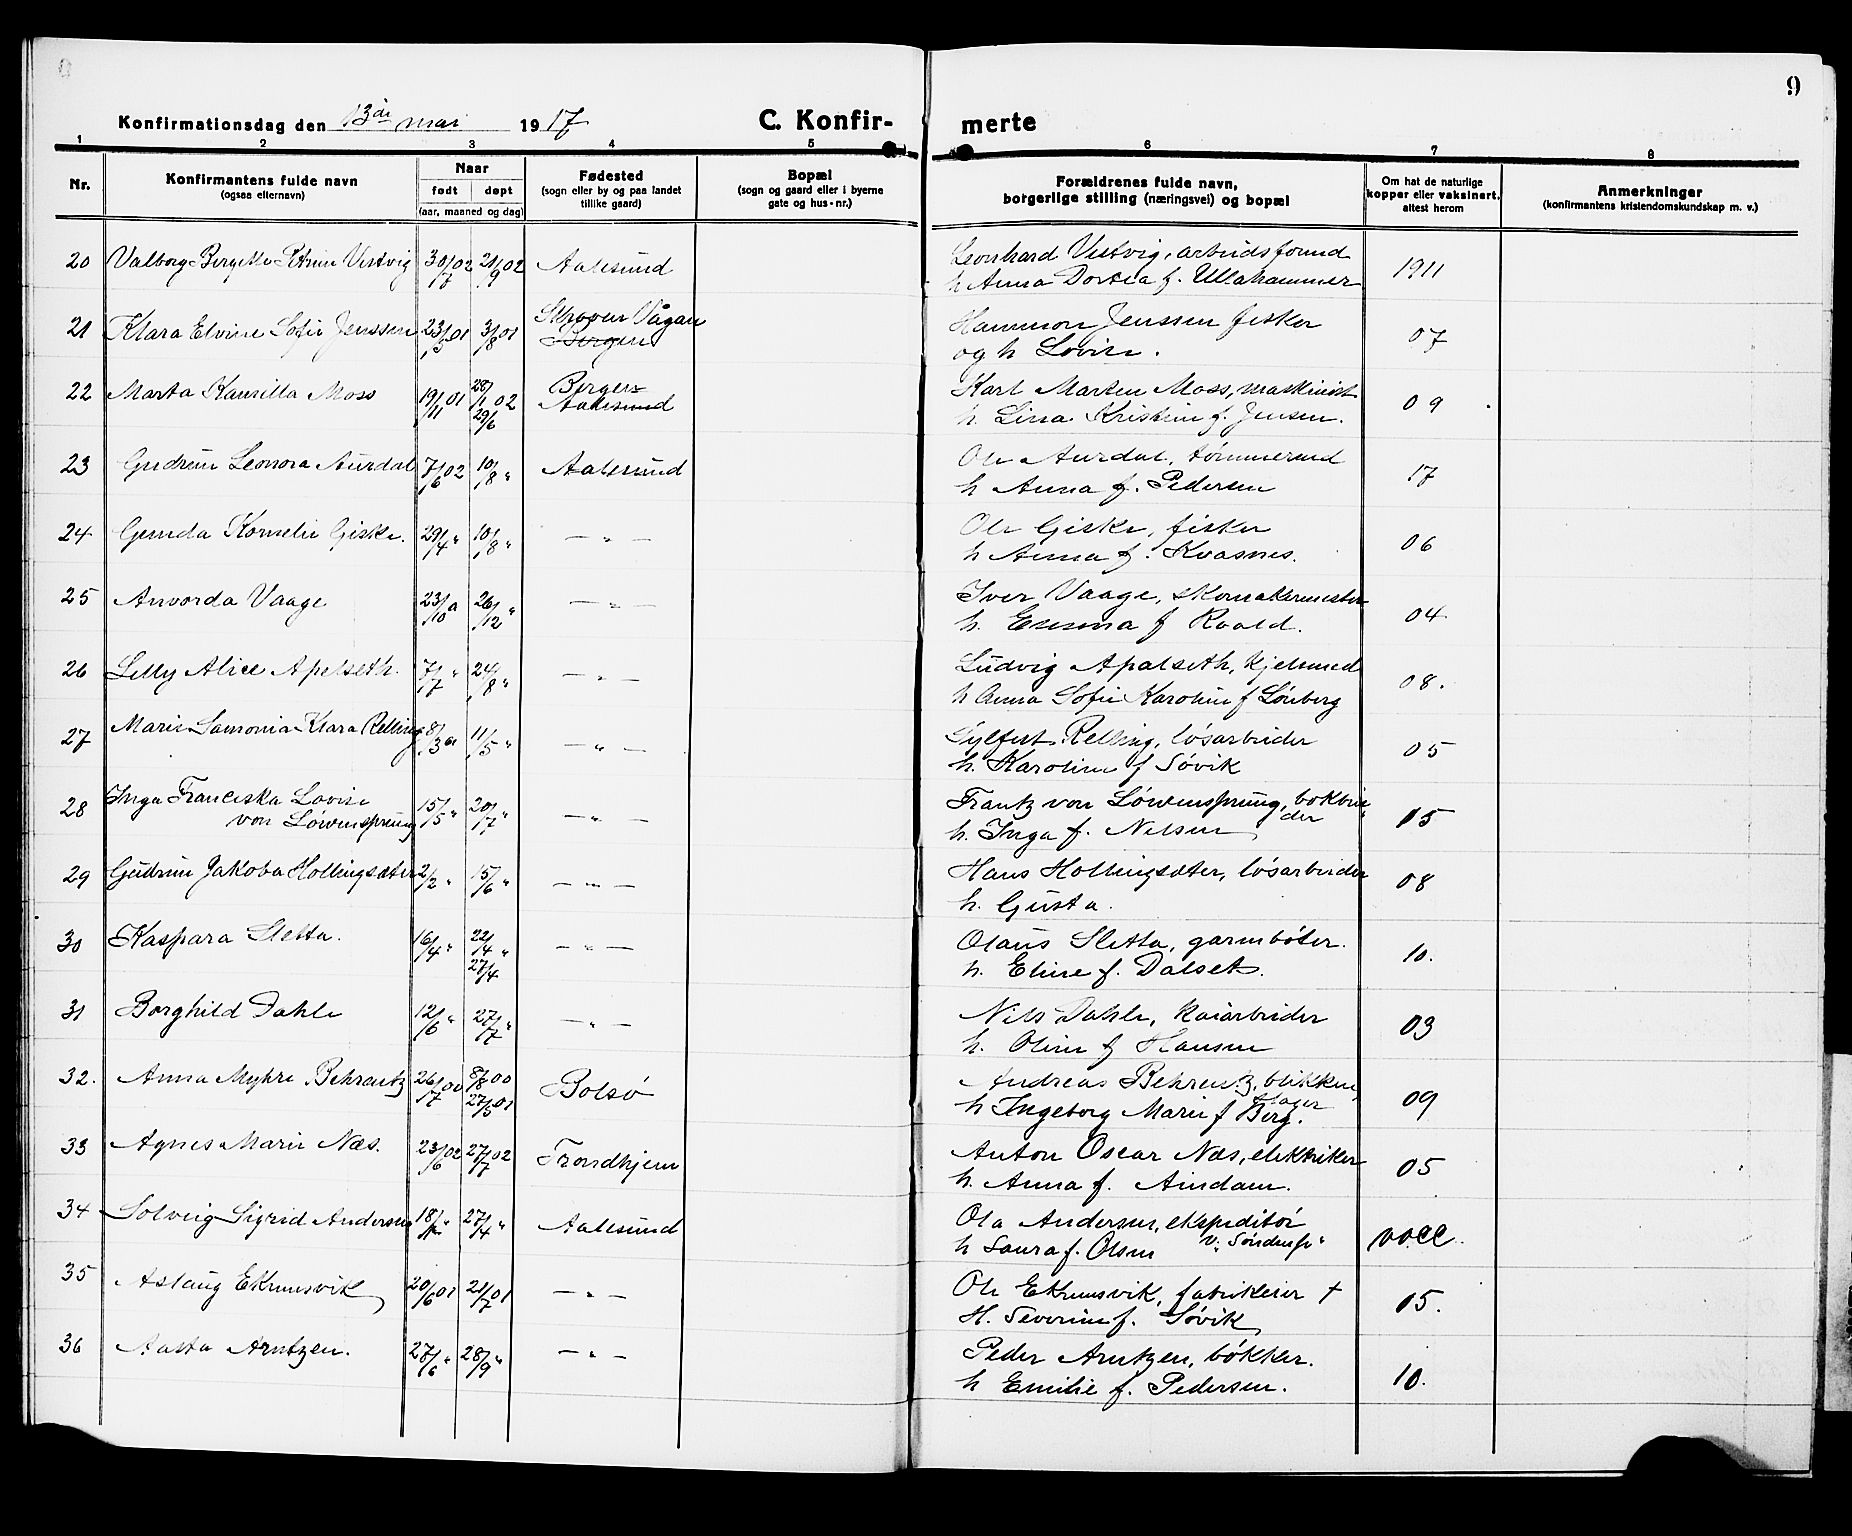 9
Konfirmationsdag den 13de mai 1917 C. Konfirmerte
1 2 3 4 5 6 7 8
Nr. Konfirmantens fulde navn (ogsaa efternavn) Naar født døpt (aar, maaned og dag) Fødested (sogn eller by og paa landet tillike gaard) Bopæl (sogn og gaard eller i byerne gate og hus-nr.) Forældrenes fulde navn, borgerlige stilling (næringsvei) og bopæl Om hat de naturlige kopper eller vaksinert, attest herom Anmerkninger (konfirmantens kristendomskundskap m. v.)
20 Valborg Bergitte Petrine Vestvig 30/7 02 21/9 02 Aalesund Leonhard Vestvig, arbeidsformd 1911
h Anna Dortea f. Ullahammer
21 Klara Elvine Sofie Jenssen 23/5 01 3/8 01 Skroven Vågan Hammon Jenssen fisker 07
Bergen og h Lovise.
22 Marta Kamilla Moss 19/11 01 28/1 02 29/6 Bergen Karl Marten Moss, maskinist 09
Aalesund h. Lina Kristine f. Jensen.
23 Gudrun Leonora Aurdal 7/6 02 10/8 " Aalesund Ole Aurdal, tømmermd 17
h Anna f. Pedersen
24 Gunda Kornelie Giske. 29/4 " 10/8 " — " — Ole Giske, fisker 06
h Anna f. Kvasnes.
25 Anvorda Vaage 23/10 01 26/12 " — " — Iver Vaage, skomakermester 04
h. Emma f Roald.
26 Lilly Alice Apelseth. 7/7 " 24/8 " — " — Ludvig Apalseth, kjelsmed 08.
h Anna Sofie Karoline f Lønberg
27 Marie Samonia Klara Relling 8/3 01 11/5 " — " — Sylfest Relling, løsarbeider 05
h. Karoline f Søvik
28 Inga Franciska Lovise 15/5 " 20/7 " — " — Frantz von Löwensprung, bokbin- 15
von Löwensprung der
h. Inga f. Nelsen
29 Gudrun Jakoba Hollingsæter 2/2 " 15/6 " — " — Hans Hollingsæter, løsarbeider 08
h. Gusta.
30 Kaspara Sletta. 16/4 " 22/4 " 27/4 — " — Olaus Sletta, garnbøter. 10.
h. Eline f. Dalset.
31 Borghild Dahle 12/6 " 27/7 " — " — Nils Dahle, kaiarbeider 03
h. Oline f Hansen
32. Anna Myhre Behrentz 26/7 00 8/8 00 27/5 01 Bolsø Andreas Behrentz, blikken- 09
slager
h Ingeborg Marie f Berg.
33 Agnes Marie Næs. 23/6 02 27/7 02 Trondhjem Anton Oscar Næs, elektriker 05
h. Anna f. Aindam.
34 Solveig Sigrid Andersen 18/ " 27/4 " Aalesund Ola Andersen, ekspeditør vacc.
h Laura f. Olsen
35 Aslaug Ekrumsvik 20/6 01 21/7 01 — " — Ole Ekrumsvik, fabrikeier † 15.
H. Severine f. Søvik
36 Aasta Arntzen. 27/6 " 28/9 " — " — Peder Arntzen, bøkker. 10.
h Emilie f. Pedersen.